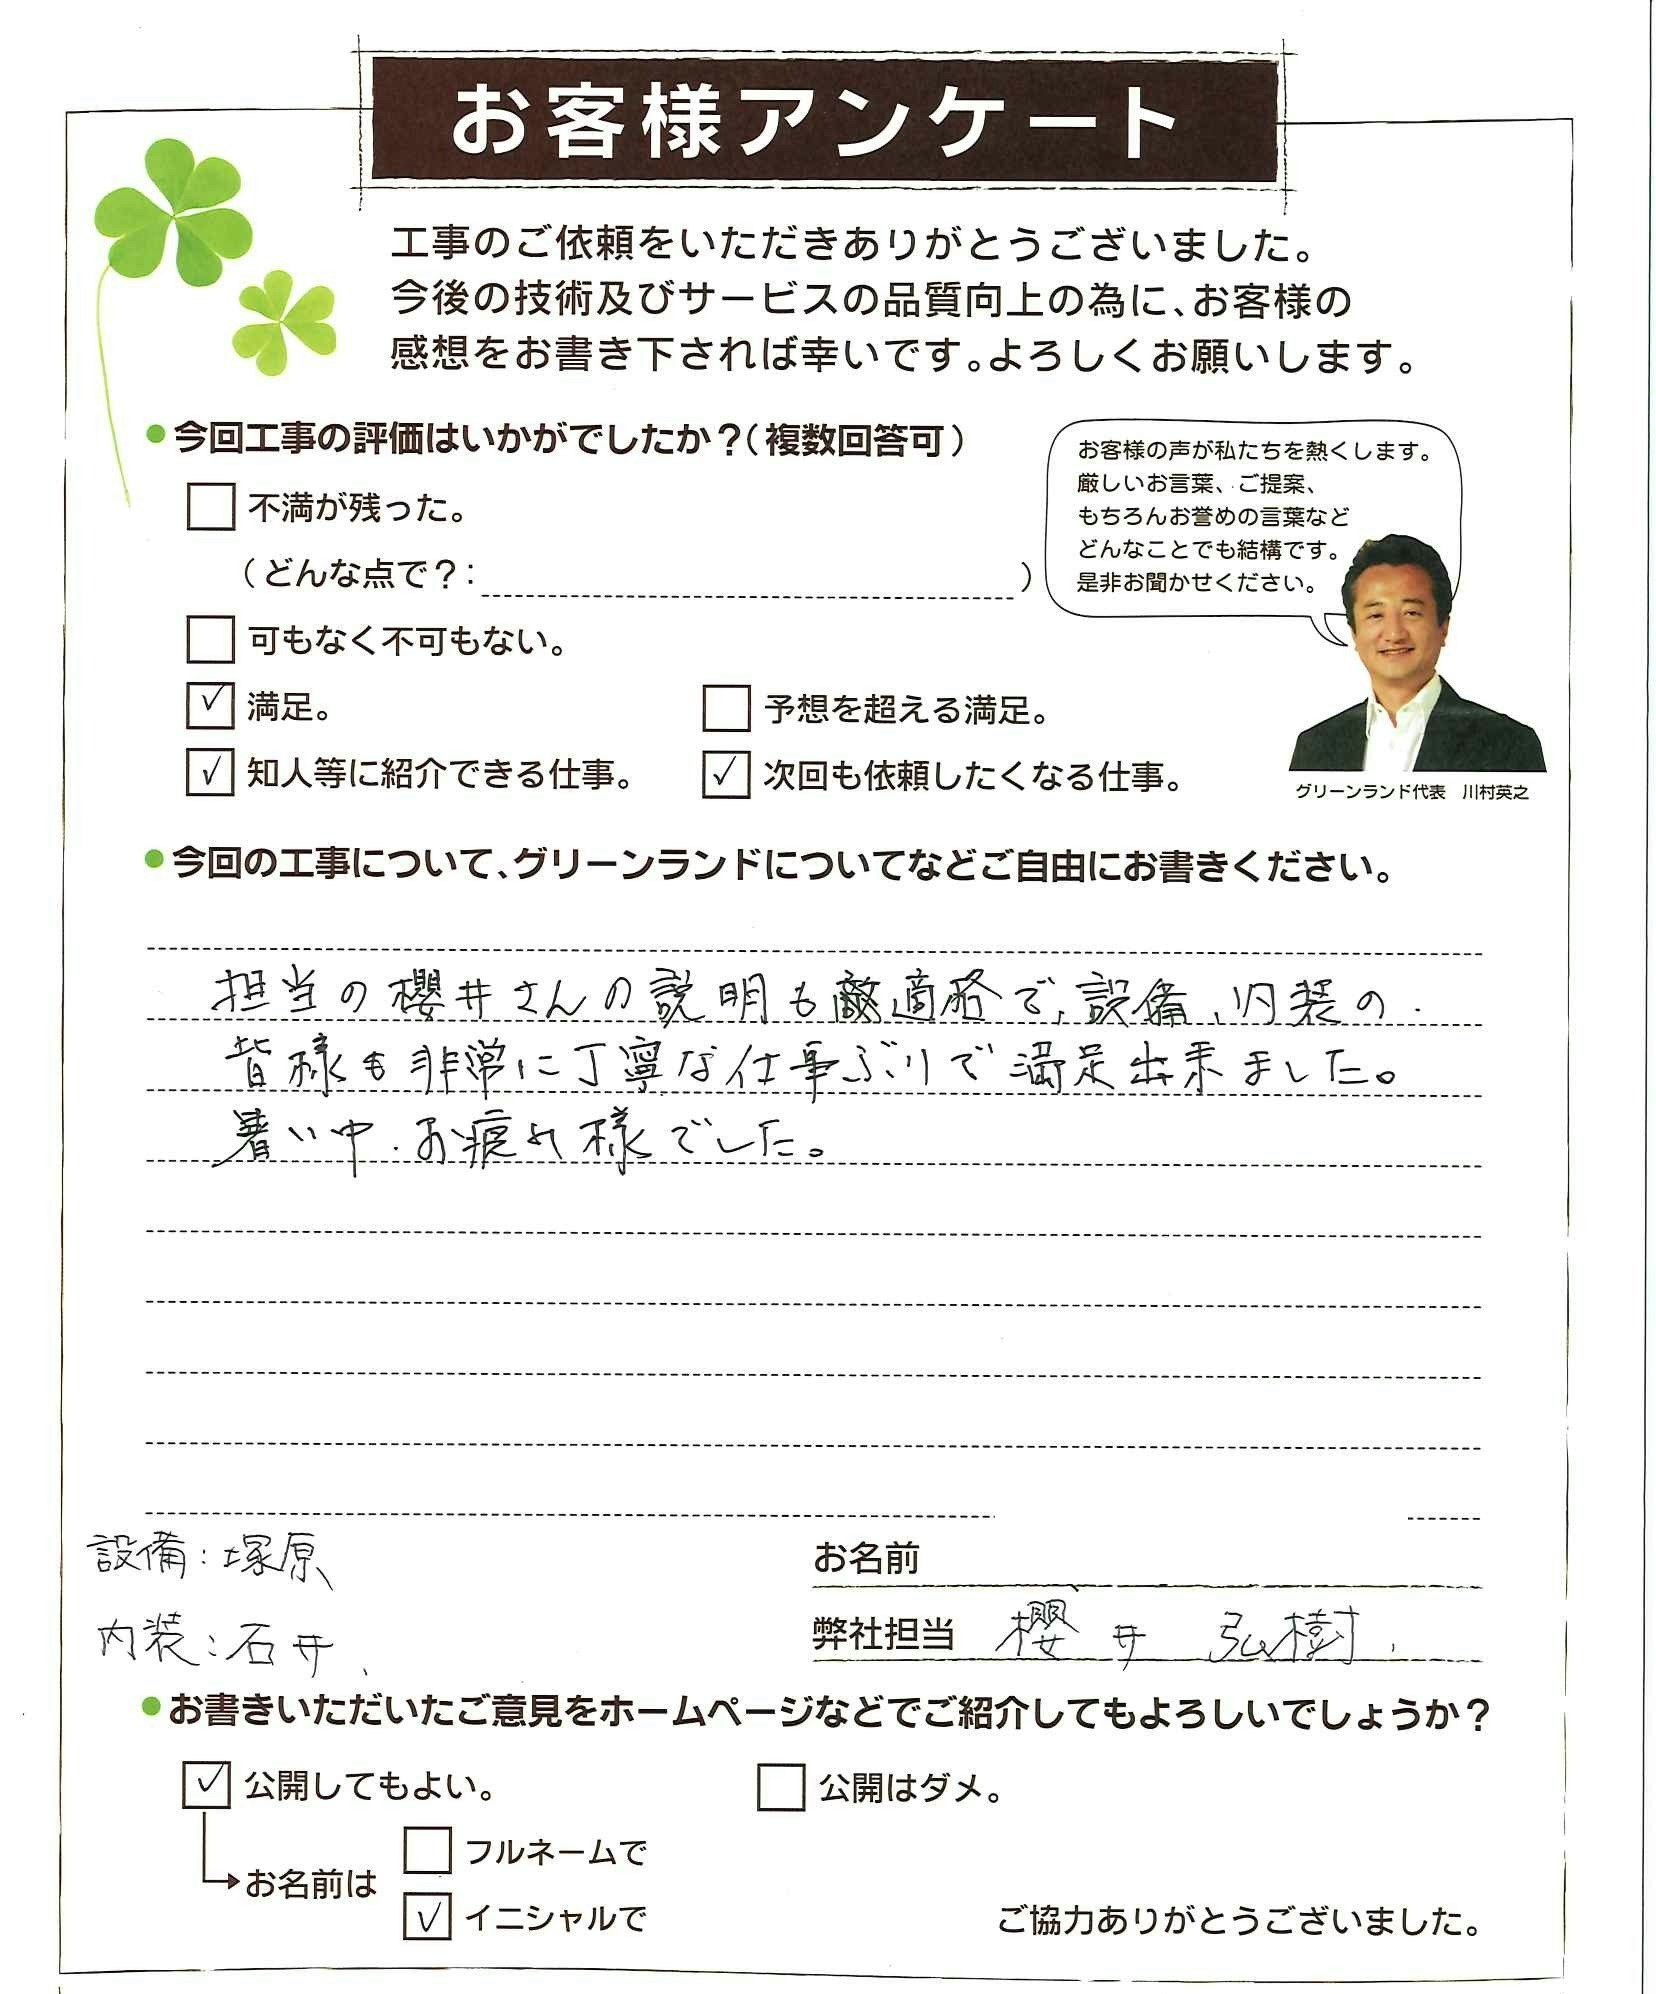 お客様アンケート
工事のご依頼をいただきありがとうございました。
今後の技術及びサービスの品質向上の為に、お客様の
感想をお書き下されば幸いです。よろしくお願いします。
●今回工事の評価はいかがでしたか？(複数回答可)
お客様の声が私たちを熱くします。
厳しいお言葉、ご提案、
もちろんお誉めの言葉など
どんなことでも結構です。
是非お聞かせください。
不満が残った。
(どんな点で？：)
可もなく不可もない。
満足。
予想を超える満足。
知人等に紹介できる仕事。
次回も依頼したくなる仕事。
グリーンランド代表 川村英之
●今回の工事について、グリーンランドについてなどご自由にお書きください。
担当の櫻井さんの説明も適格で、設備、内装の
皆様も非常に丁寧な仕事ぶりで満足出来ました。
暑い中、お疲れ様でした。
設備：塚原
お名前
内装：石井
弊社担当 櫻井 弘樹
●お書きいただいたご意見をホームページなどでご紹介してもよろしいでしょうか？
公開してもよい。
公開はダメ。
お名前は
フルネームで
イニシャルで
ご協力ありがとうございました。